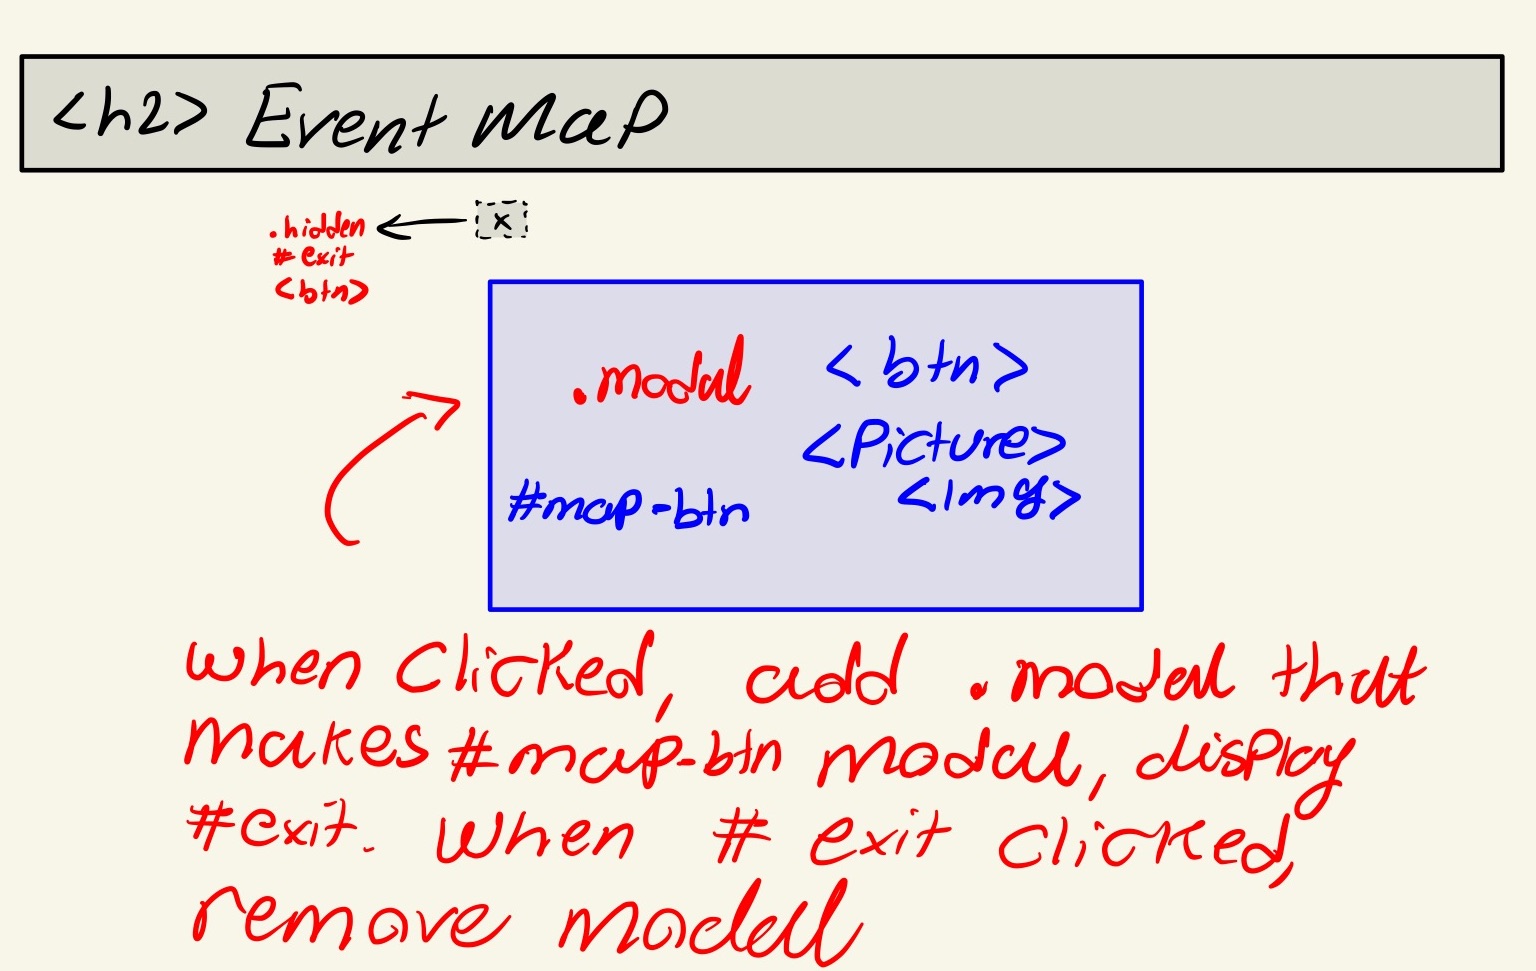 <h2> Event Map
.hidden
x
#exit
<btn>
.modal
<btn>
<Picture>
#map-btn
<img>
when clicked, add .modal that
makes #map-btn modal, display
#exit. when # exit clicked,
remove modal